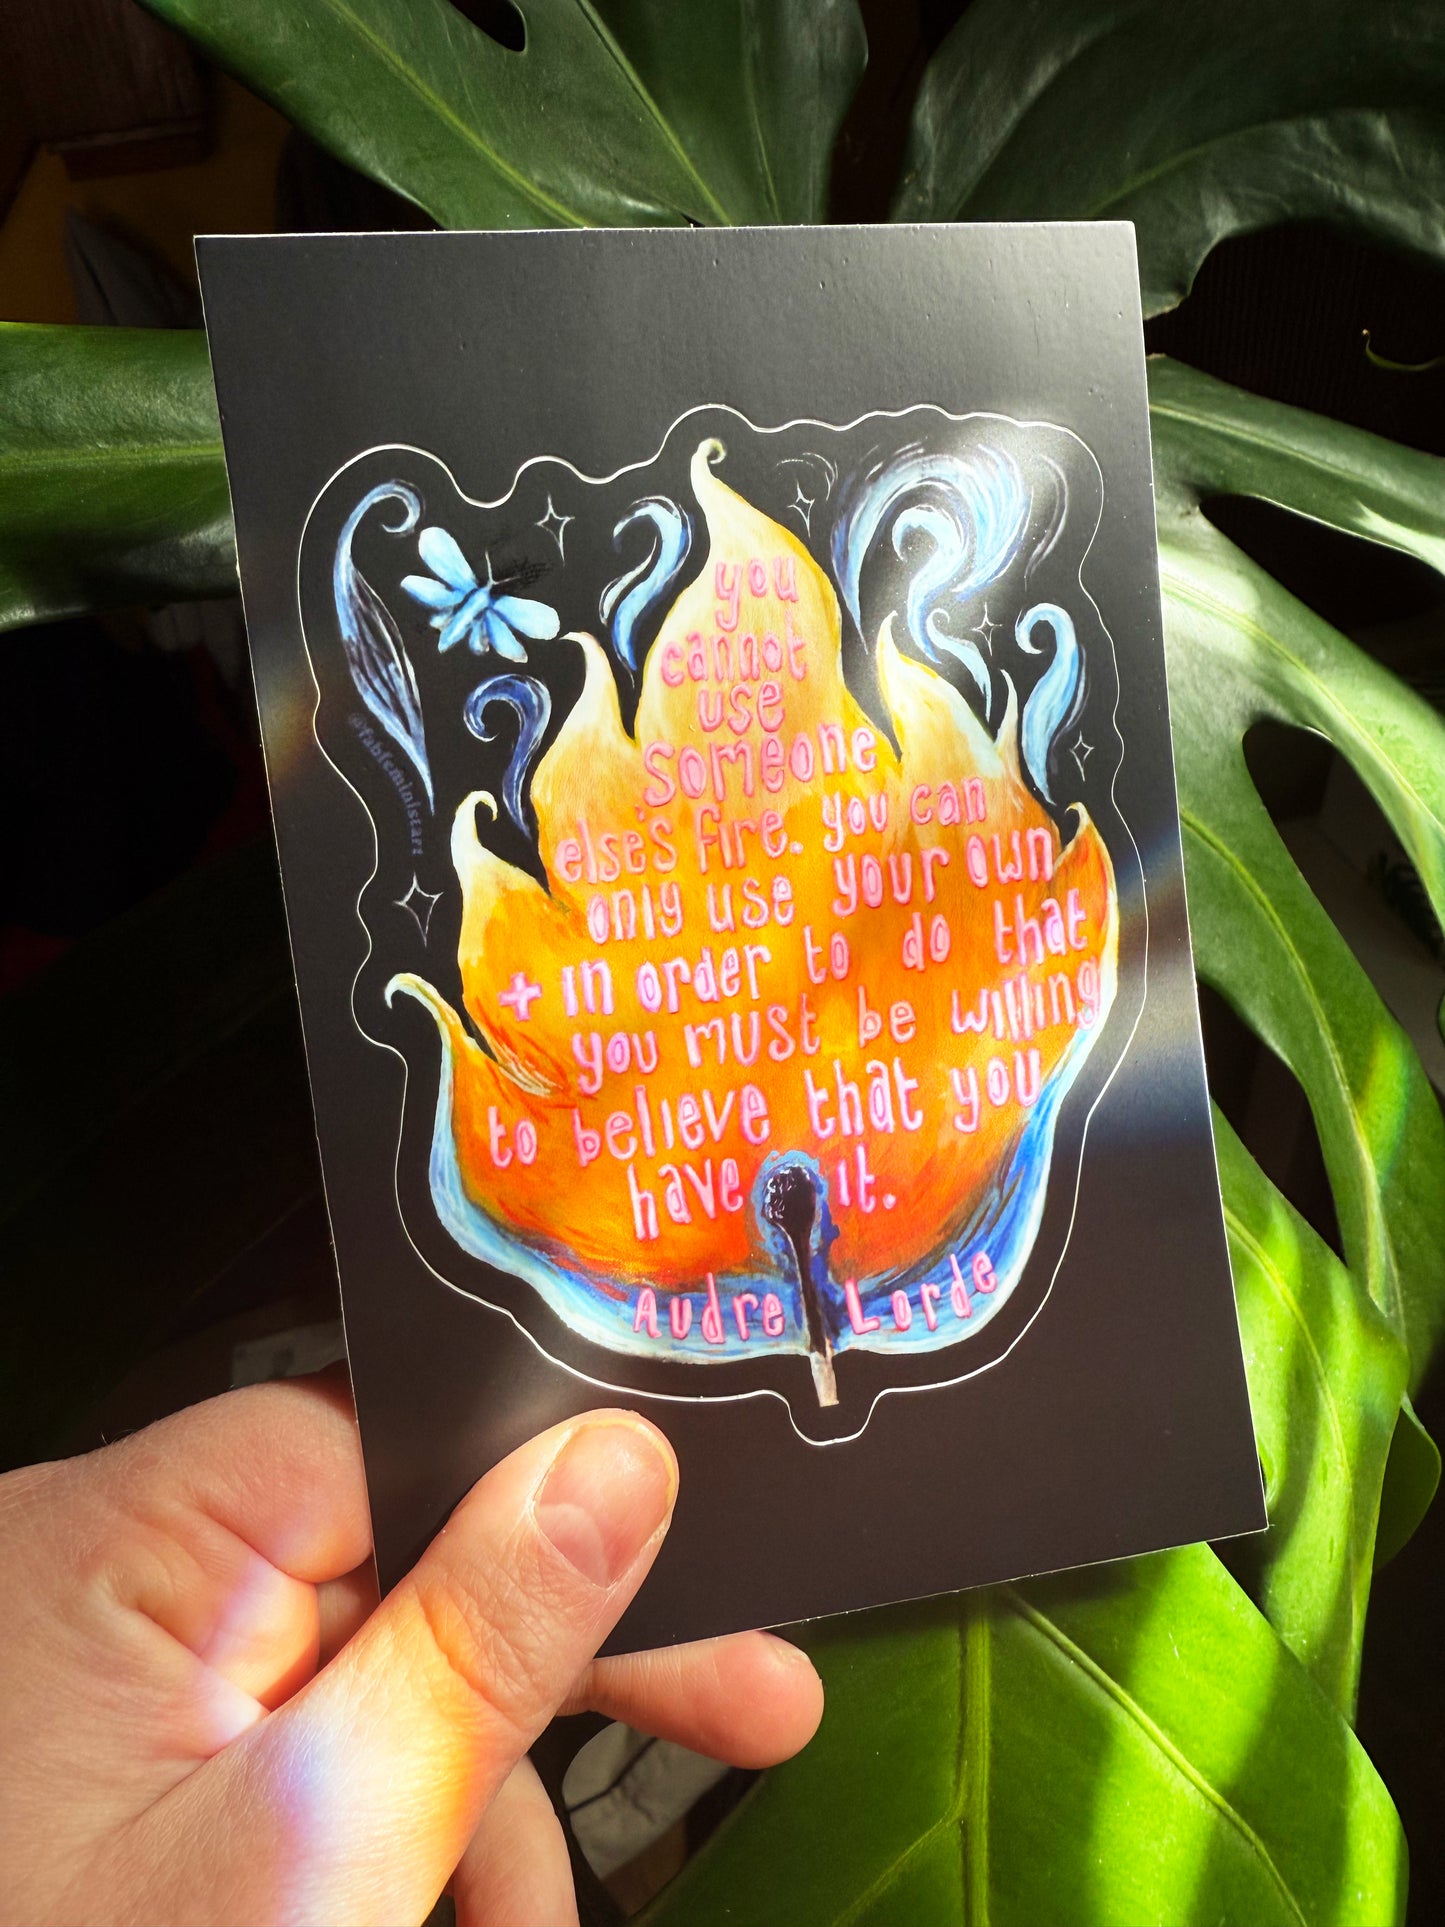 you
cannot
use
someone
else's fire. you can
only use your own
+ in order to do that
you must be willing
to believe that you
have it.
Audre Lorde
@fabfeministart